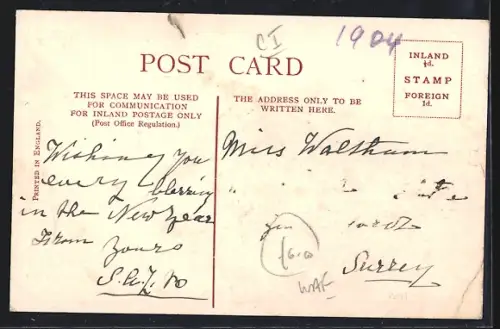 CI
1904
POST CARD
INLAND
½d.
STAMP
FOREIGN
1d.
THIS SPACE MAY BE USED
FOR COMMUNICATION
FOR INLAND POSTAGE ONLY
(Post Office Regulation.)
THE ADDRESS ONLY TO BE
WRITTEN HERE.
PRINTED IN ENGLAND.
Wishing you
every blessing
in the New Year
From Yours
Miss Waltham
Surrey